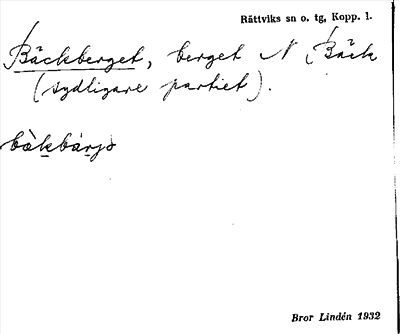 Rättviks sn o. tg, Kopp. l.
Bäckberget, berget N Bäck
(sydligare partiet).
bàkbárjə
Bror Lindén 1932